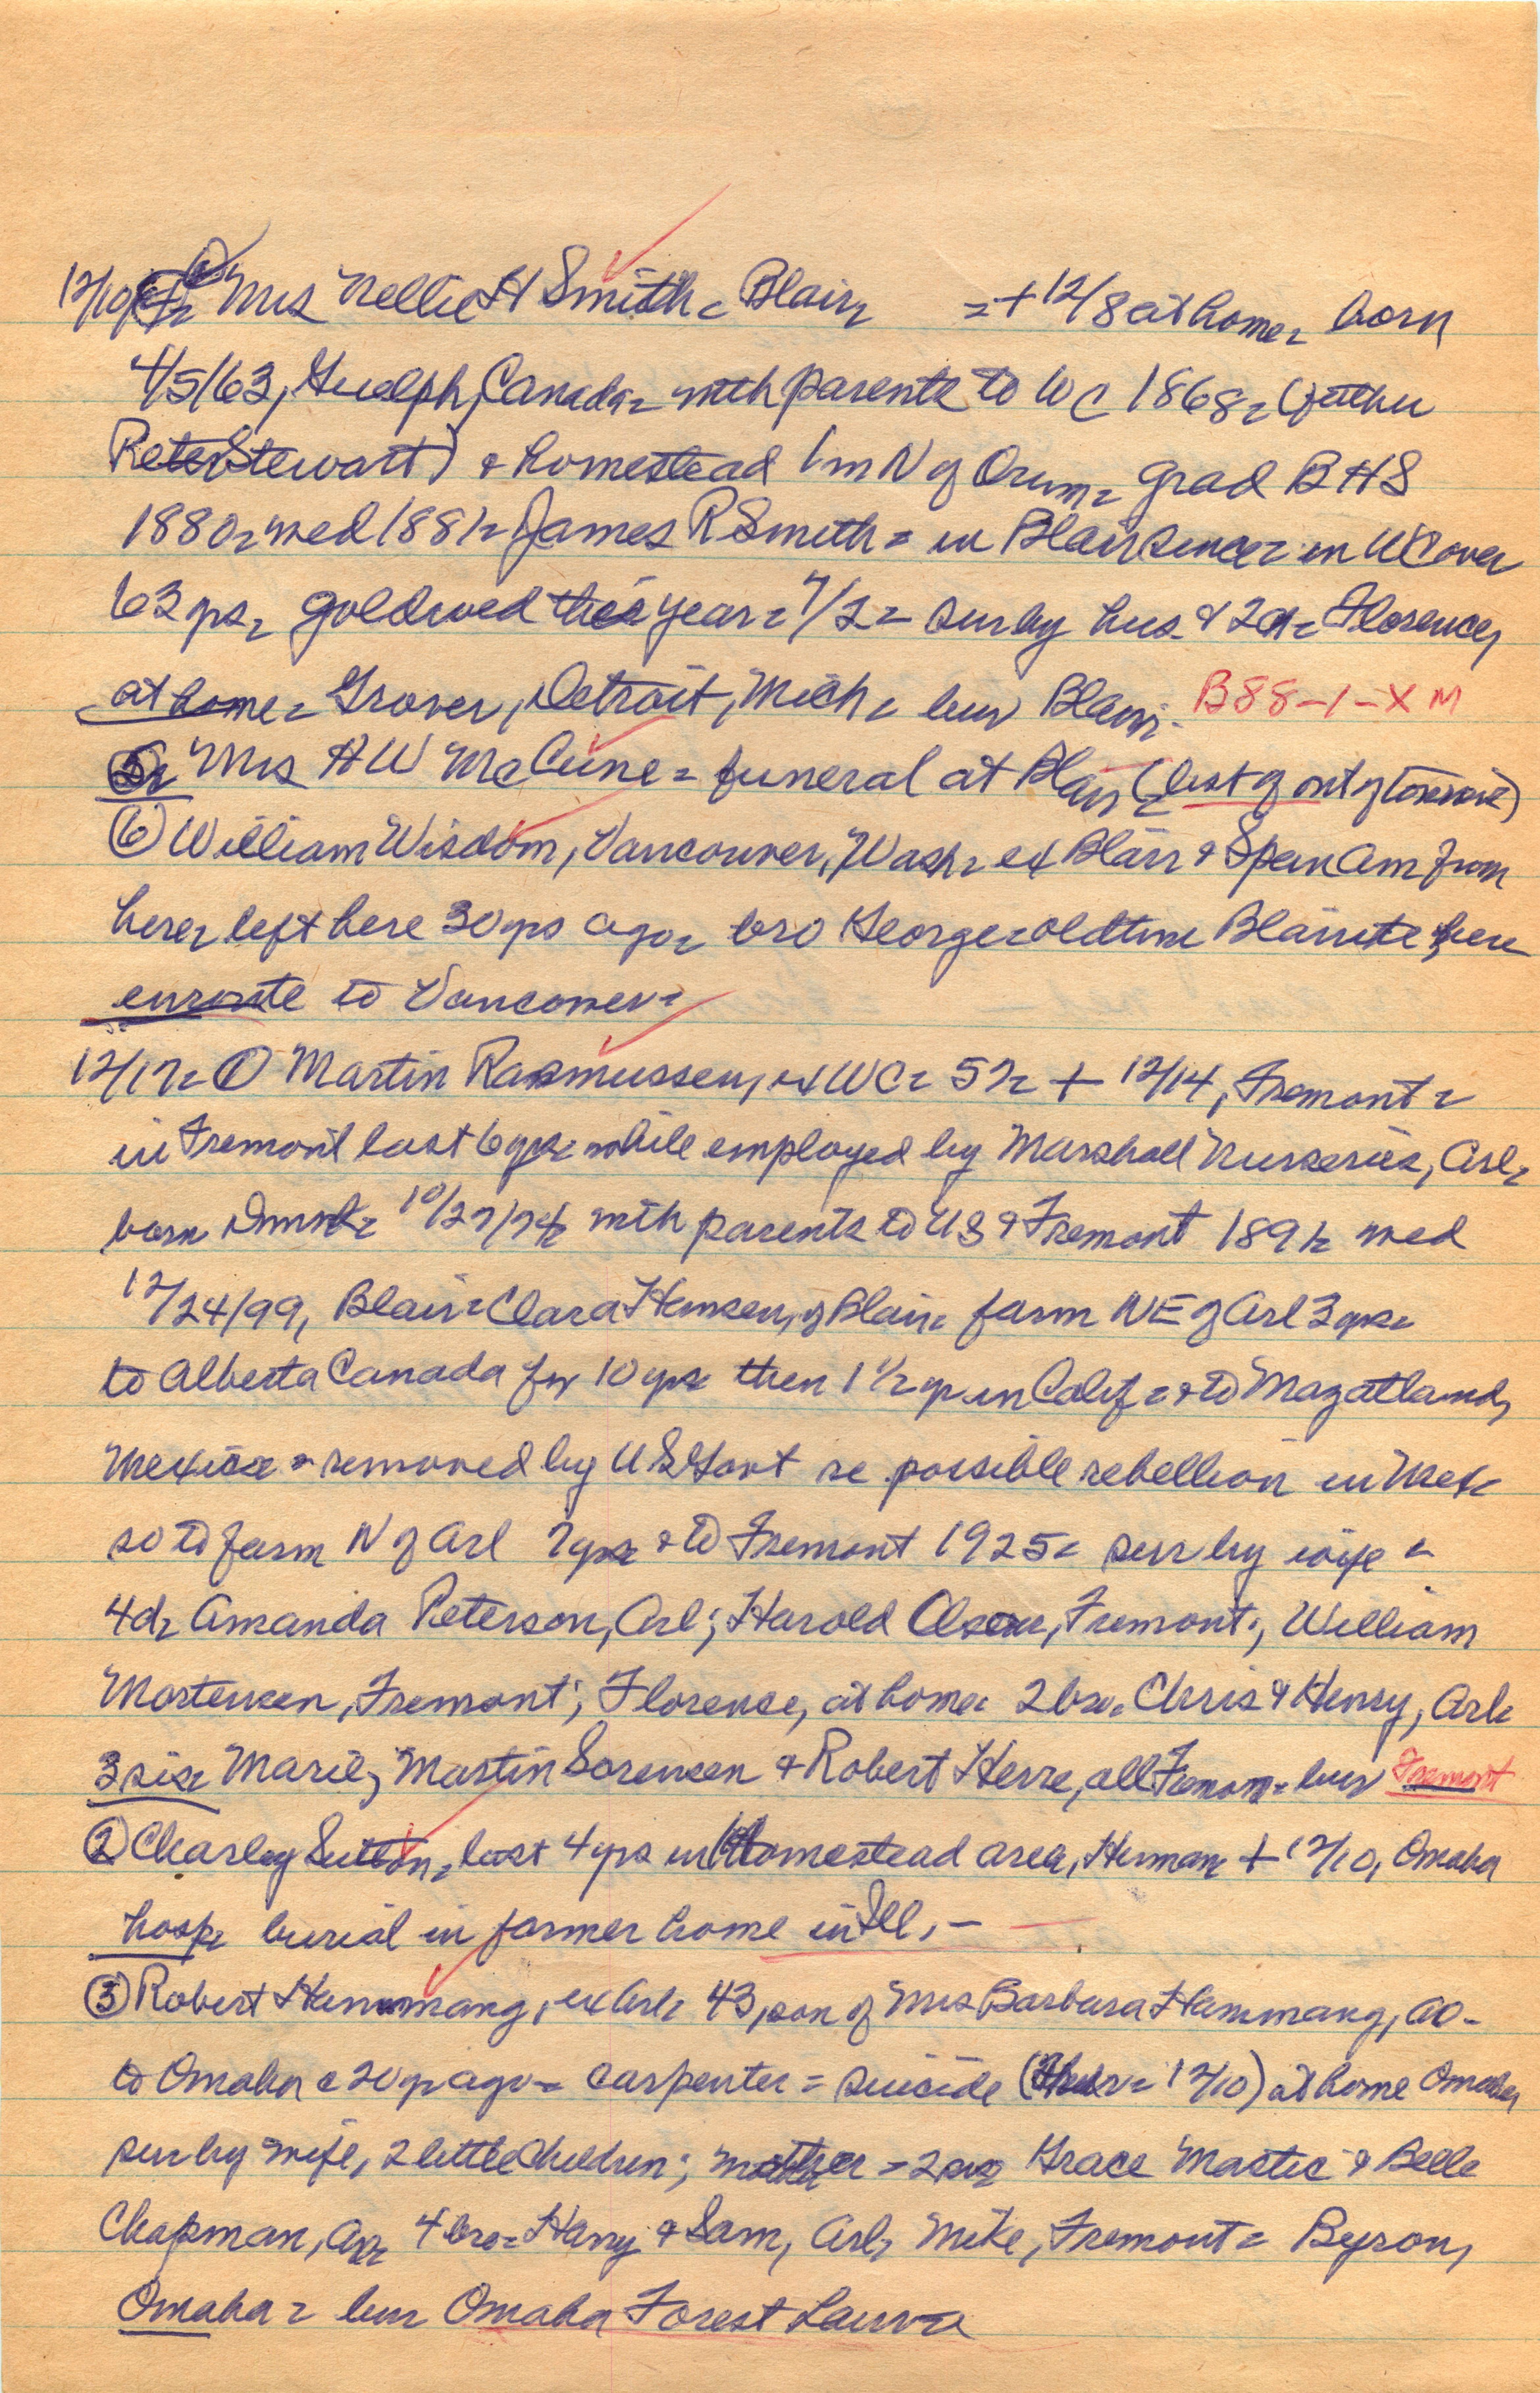 12/10 ① Mrs Nellie H Smith = Blair = + 12/8 at home = born
4/5/63, Guelph, Canada = with parents to WC 1868 = (father
Peter Stewart) & homestead 1 m N of Orum = grad BHS
1880 = wed 1881 = James R Smith = in Blair since = in WC over
63 yrs = gold wed this year = 7/2 = sur by hus & 2 ch = Florence,
at home = Grover, Detroit, Mich = bur Blair. B88-1-X M
Mrs HW McCune = funeral at Blair = (list of out of towners)
⑥ William Wisdom, Vancouver, Wash = ex Blair & Span Am from
here = left here 30 yrs ago = bro George = oldtime Blairite here
enroute to Vancouver =
12/17 = ① Martin Rasmussen, ex WC = 57 = + 12/14, Fremont =
in Fremont last 6 yrs = while employed by Marshall Nurseries, Arl =
born Dmrk = 10/27/74 = with parents to US & Fremont 1891 = wed
12/24/99, Blair = Clara Hansen, of Blair = farm NE of Arl 3 yrs =
to Alberta Canada for 10 yrs = then 1 1/2 yr in Calif = & to Mazatland,
Mexico = removed by US Govt re possible rebellion in Mex =
so to farm N of Arl 7 yrs = & to Fremont 1925 = sur by wife =
4 d = Amanda Peterson, Arl; Harold Olsen, Fremont; William
Mortensen, Fremont; Florence, at home = 2 bro = Chris & Henry, Arl =
3 sis = Marie, Martin Sorensen & Robert Herre, all Fremont = bur Fremont
② Charley Sutton = last 4 yrs in Homestead area, Herman = + 12/10, Omaha
hosp = burial in former home in Ill. -
③ Robert Hammang, ex Arl = 43, son of Mrs Barbara Hammang, Ao =
to Omaha c 20 yr ago = carpenter = suicide (Thur = 12/10) at home Omaha
sur by wife, 2 little children; mother = 2 sis Grace Mastic & Belle
Chapman, Arl = 4 bro = Harry & Sam, Arl, Mike, Fremont = Byron,
Omaha = bur Omaha Forest Lawn =